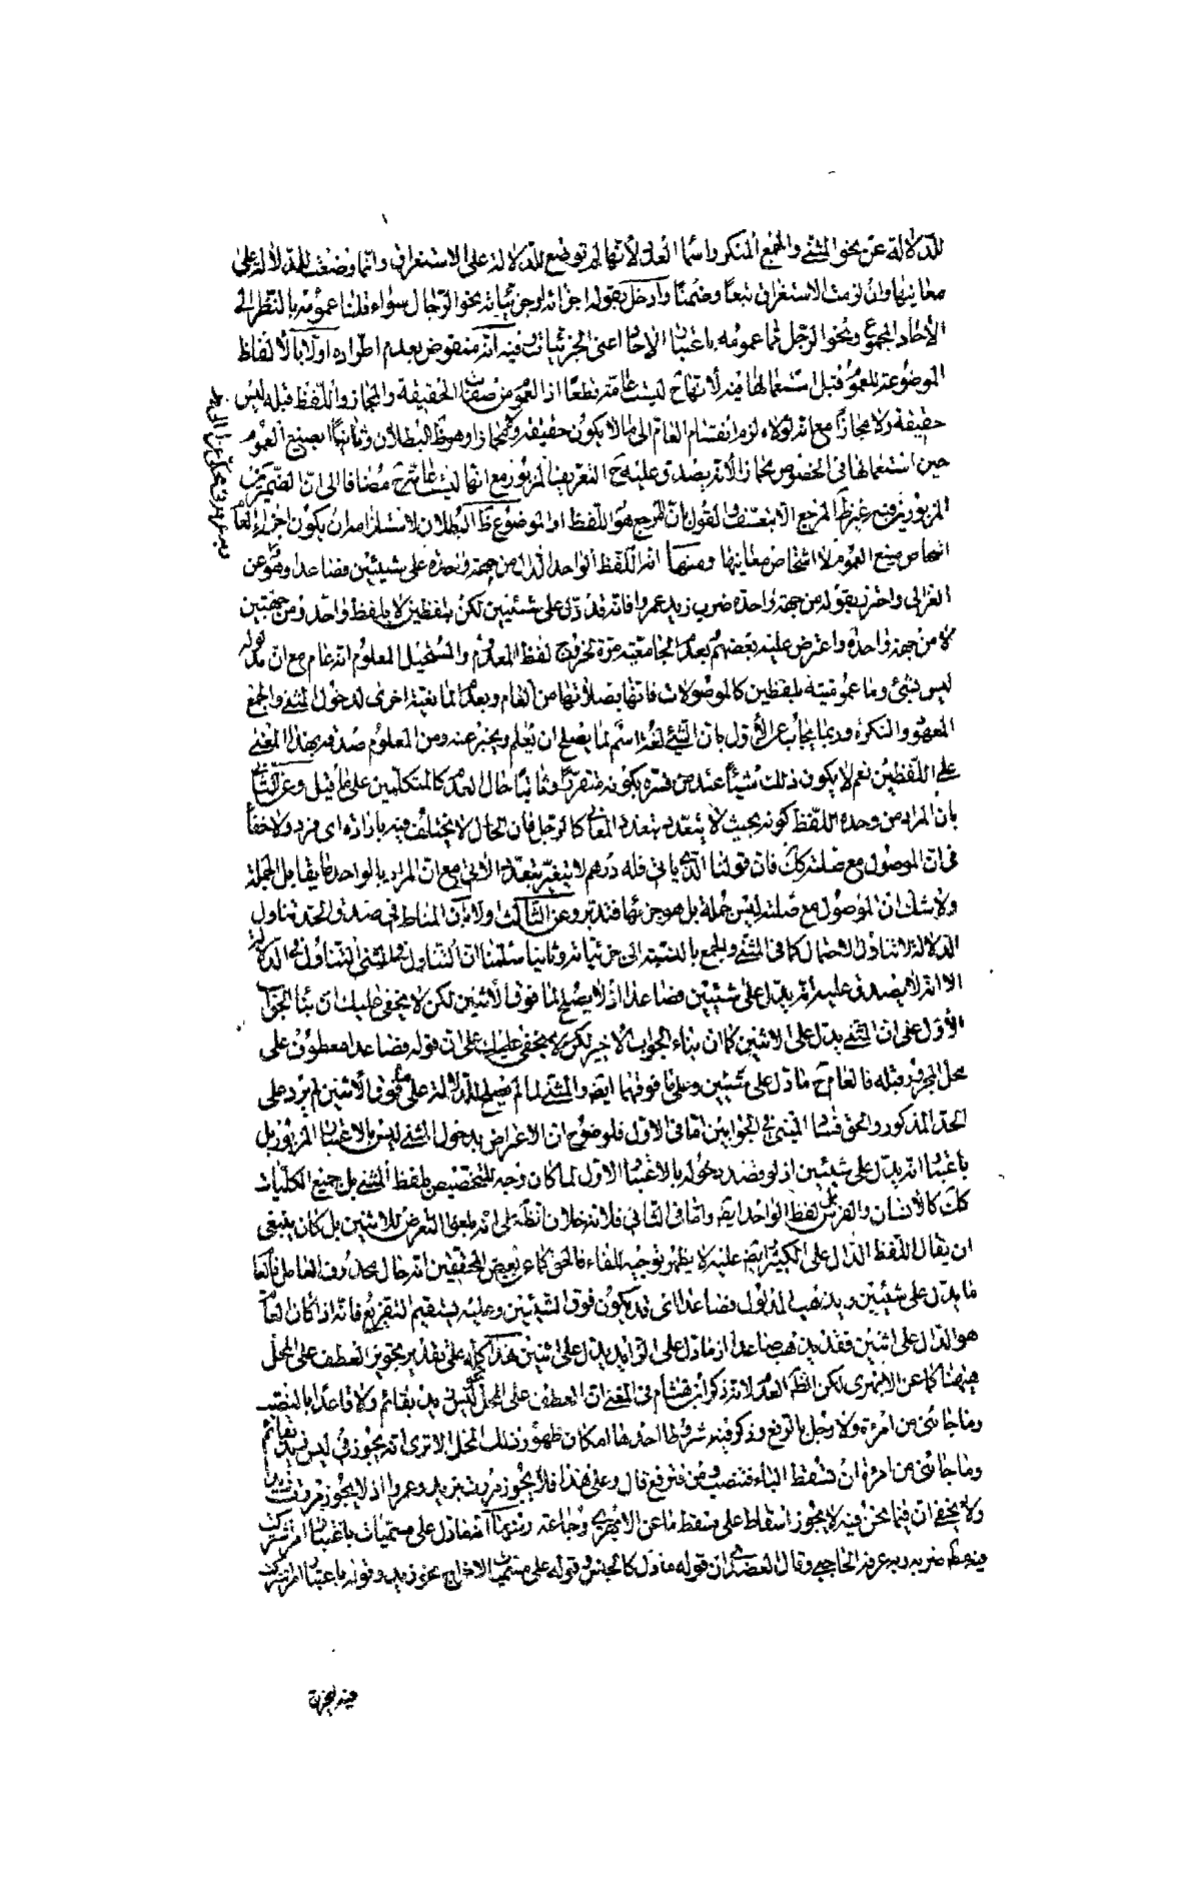 للدلالة عن نحو المثنى والجمع المنكر واسماء العدد لأنها لم توضع للدلالة على الاستغراق وانما وضعت للدلالة على
معانيها وان لزمت الاستغراق تبعا وضمنا وادخل بقوله اجزائه او جزئياته نحو الرجال سواء قلنا عمومه بالنظر الى
الأحاد او المجموع ونحو الرجل مما عمومه باعتبار الاحاد اعنى الجزئيات وفيه انه منقوض بعدم اطراده اولا بالألفاظ
الموضوعة للعموم قبل استعمالها فيه لأنها ح ليست عامة قطعا اذ العموم من صفات الحقيقة والمجاز واللفظ قبله ليس
حقيقة ولا مجازا مع انه لولاه لزم انقسام العام الى ما لا يكون حقيقة ولا مجازا وهو ظ البطلان وثانيا بصيغ العموم
حين استعمالها فى الخصوص مجازا لأنه يصدق عليه ح التعريف المزبور مع انها ليست عامة ح مضافا الى ان الضمير فى
المزبور غير ظ المرجع الا بتعسف والقول بان المرجع هو اللفظ او الموضوع ظ البطلان لاستلزامه ان يكون اجزاء العام
اشخاص صيغ العموم لا اشخاص معانيها ومنها انه اللفظ الواحد الدال من جهة واحدة على شيئين فصاعدا وهو عن
الغزالى واحترز بقوله من جهة واحدة ضرب زيد عمرا فانه قد دل على شيئين لكن بلفظين لا بلفظ واحد ومن جهتين
لا من جهة واحدة واعترض عليه بعضهم بعدم الجامعية مرة لخروج لفظ المعدوم والمستحيل المعلوم انه عام مع ان مدلوله
ليس بشئ وما عموميته بلفظين كالموصولات فانها بصلاتها من العام وبعدم المانعية اخرى لدخول المثنى والجمع
المعهود والنكرة وربما يجاب عن الأول بان الشيء لغة اسم لما يصلح ان يعلم ويخبر عنه ومن المعلوم صدقه بهذا المعنى
على اللفظين نعم لا يكون ذلك شيئا عند من فسره بكونه متقررا وثابتا حال العدم كالمتكلمين على ما قيل وعن الثانى
بان المراد من وحدة اللفظ كونه بحيث لا يتعدد بتعدد المعانى كالرجل فان الحال لا يختلف فيه بارادة اى فرد ولا خفاء
فى ان الموصول مع صلته كك فان قولنا الذى ياتى فله درهم لا يتغير بتعدد الآتى مع ان المراد بالواحد ما يقابل الجملة
ولا شك ان الموصول مع صلته ليس جملة بل هو جزئها فتدبر وعن الثالث اولا بان المناط فى صدق الحد تناول
الدلالة لا تناول الاحتمال كما فى المثنى والجمع بالنسبة الى جزئياته وثانيا سلمنا ان التناول
الا انه لا يصدق عليه انه يدل على شيئين فصاعدا اذ لا يصلح لما فوق الاثنين لكن لا يخفى عليك ان بناء الجواب
الأول على ان المثنى يدل على الاثنين كما ان بناء الجواب الأخير على ان قوله فصاعدا معطوف على
محل المجرور قبله فالعام ح ما دل على شيئين وعلى ما فوقهما ايضا والمثنى لما لم يصلح للدلالة على ما فوق الاثنين لم يرد على
الحد المذكور والحق فساد المبنى فى الجوابين اما فى الاول فلوضوح ان الاعتراض بدخول المثنى ليس بالاعتبار المزبور بل
باعتبار انه يدل على شيئين اذ لو قصد دخوله بالاعتبار الاول لما كان وجه للتخصيص بلفظ المثنى بل جميع الكليات
كك كالانسان والفرس بل لفظ الواحد ايضا واما فى الثانى فلانه خلاف الظ على انه يلغو التعرض للاثنين بل كان ينبغى
ان يقال اللفظ الدال على الكثير ايضا عليه لا يظهر توجيه الفاء فالحق كما عن بعض المحققين انه حال محذوف العامل فالعام
ما يدل على شيئين ويذهب المدلول فصاعدا اى قد يكون فوق الشيئين وعليه يستقيم التفريع فانه اذا كان العام
هو الدال على اثنين فقد يذهب صاعدا اذ ما دل على الزايد يدل على اثنين هذا كله على تقدير تجويز العطف على المحل
هيهنا كما عن الابهرى لكن الظ العدم لانه ذكر ابن هشام فى المغنى ان العطف على المحل كليس زيد بقائم ولا قاعدا بالنصب
وما جائنى من امرءة ولا رجل بالرفع وذكر فيه شروطا احدها امكان ظهور ذلك المحل الا ترى انه يجوز فى ليس زيد بقائم
وما جائنى من امرءة ان تسقط الباء فتنصب ومن فترفع قال وعلى هذا فلا يجوز مررت بزيد وعمرا اذ لا يجوز مررت زيدا
ولا يخفى ان فيما نحن فيه لا يجوز اسقاط على فسقط ما عن الابهرى وجماعة ومنها انه ما دل على مسميات باعتبار امر اشتركت
فيه مطلقا ضربة وبه عرفه الحاجبى وقال العضدى ان قوله ما دل كالجنس وقوله على مسميات لاخراج نحو زيد وقوله باعتبار امر اشتركت
فيه لخرج